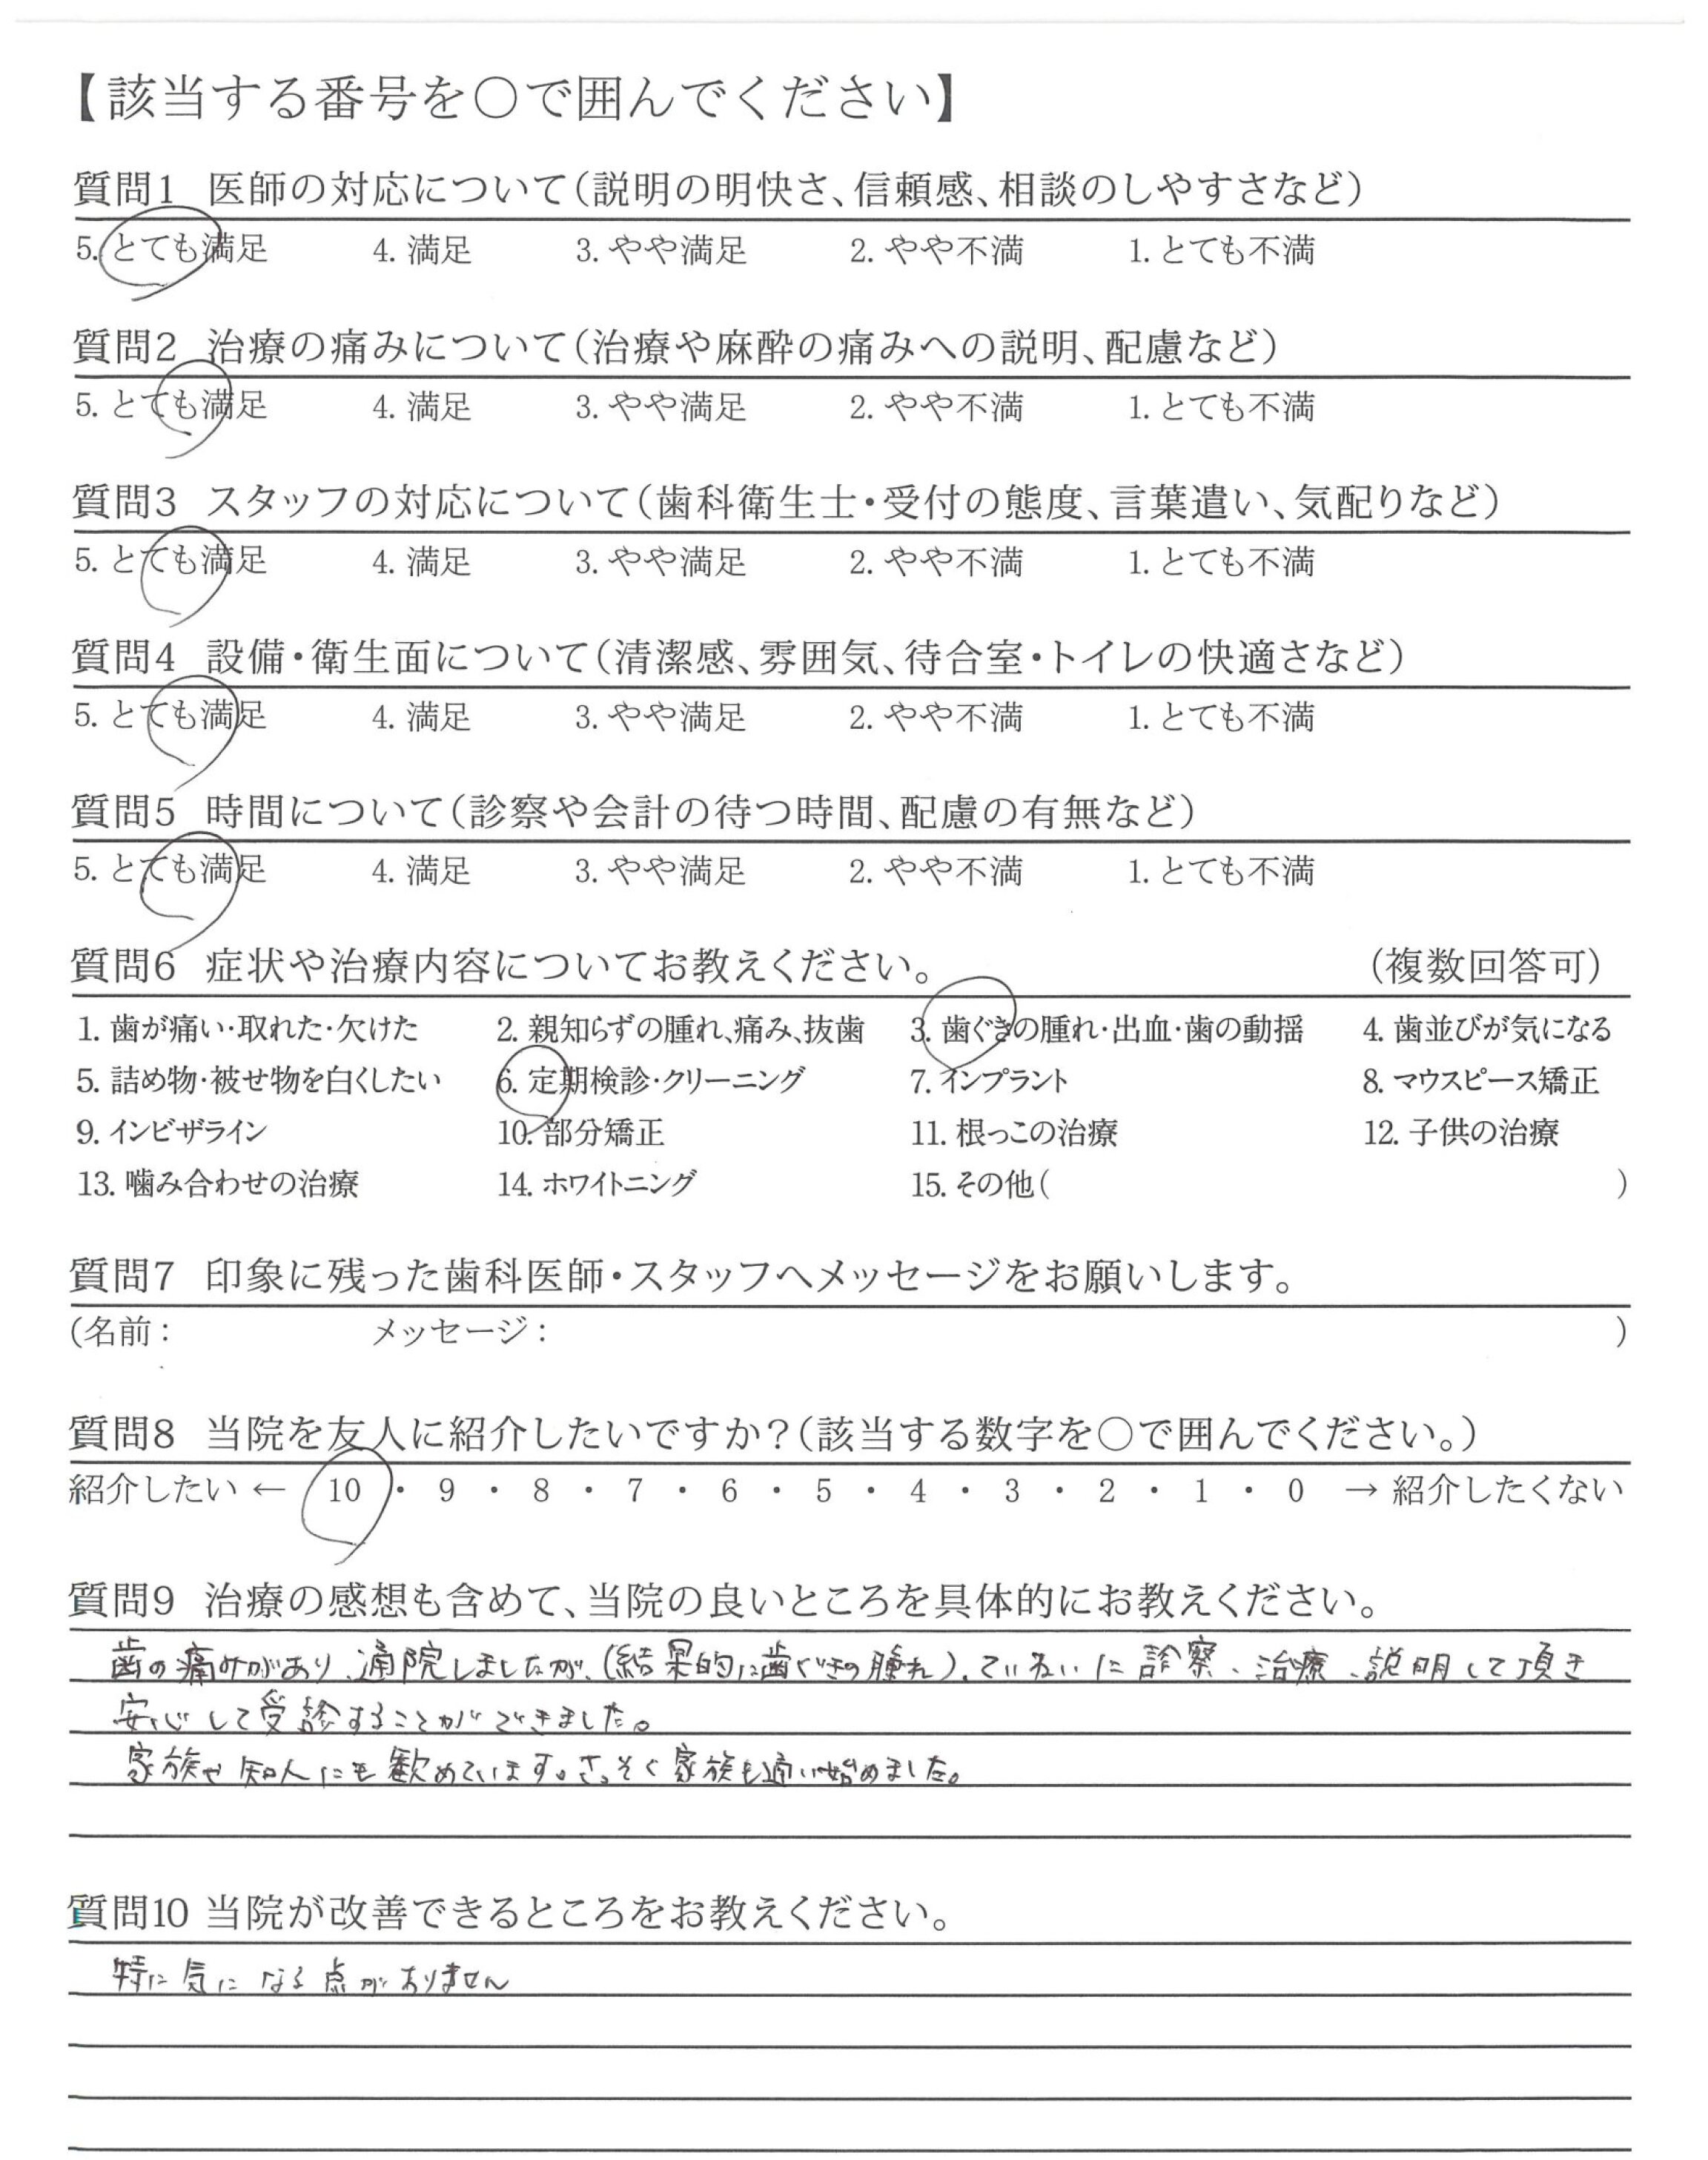 【該当する番号を○で囲んでください】
質問1 医師の対応について(説明の明快さ、信頼感、相談のしやすさなど)
5. とても満足 4. 満足 3. やや満足 2. やや不満 1. とても不満
質問2 治療の痛みについて(治療や麻酔の痛みへの説明、配慮など)
5. とても満足 4. 満足 3. やや満足 2. やや不満 1. とても不満
質問3 スタッフの対応について(歯科衛生士・受付の態度、言葉遣い、気配りなど)
5. とても満足 4. 満足 3. やや満足 2. やや不満 1. とても不満
質問4 設備・衛生面について(清潔感、雰囲気、待合室・トイレの快適さなど)
5. とても満足 4. 満足 3. やや満足 2. やや不満 1. とても不満
質問5 時間について(診察や会計の待つ時間、配慮の有無など)
5. とても満足 4. 満足 3. やや満足 2. やや不満 1. とても不満
質問6 症状や治療内容についてお教えください。 (複数回答可)
1. 歯が痛い・取れた・欠けた 2. 親知らずの腫れ、痛み、抜歯 3. 歯ぐきの腫れ・出血・歯の動揺 4. 歯並びが気になる
5. 詰め物・被せ物を白くしたい 6. 定期検診・クリーニング 7. インプラント 8. マウスピース矯正
9. インビザライン 10. 部分矯正 11. 根っこの治療 12. 子供の治療
13. 噛み合わせの治療 14. ホワイトニング 15. その他( )
質問7 印象に残った歯科医師・スタッフへメッセージをお願いします。
(名前: メッセージ: )
質問8 当院を友人に紹介したいですか?(該当する数字を○で囲んでください。)
紹介したい ← 10 ・ 9 ・ 8 ・ 7 ・ 6 ・ 5 ・ 4 ・ 3 ・ 2 ・ 1 ・ 0 → 紹介したくない
質問9 治療の感想も含めて、当院の良いところを具体的にお教えください。
歯の痛みがあり、通院しましたが、(結果的に歯ぐきの腫れ)、ていねいに診察、治療、説明して頂き
安心して受診することができました。
家族や知人にも勧めています。さっそく家族も通い始めました。
質問10 当院が改善できるところをお教えください。
特に気になる点がありません